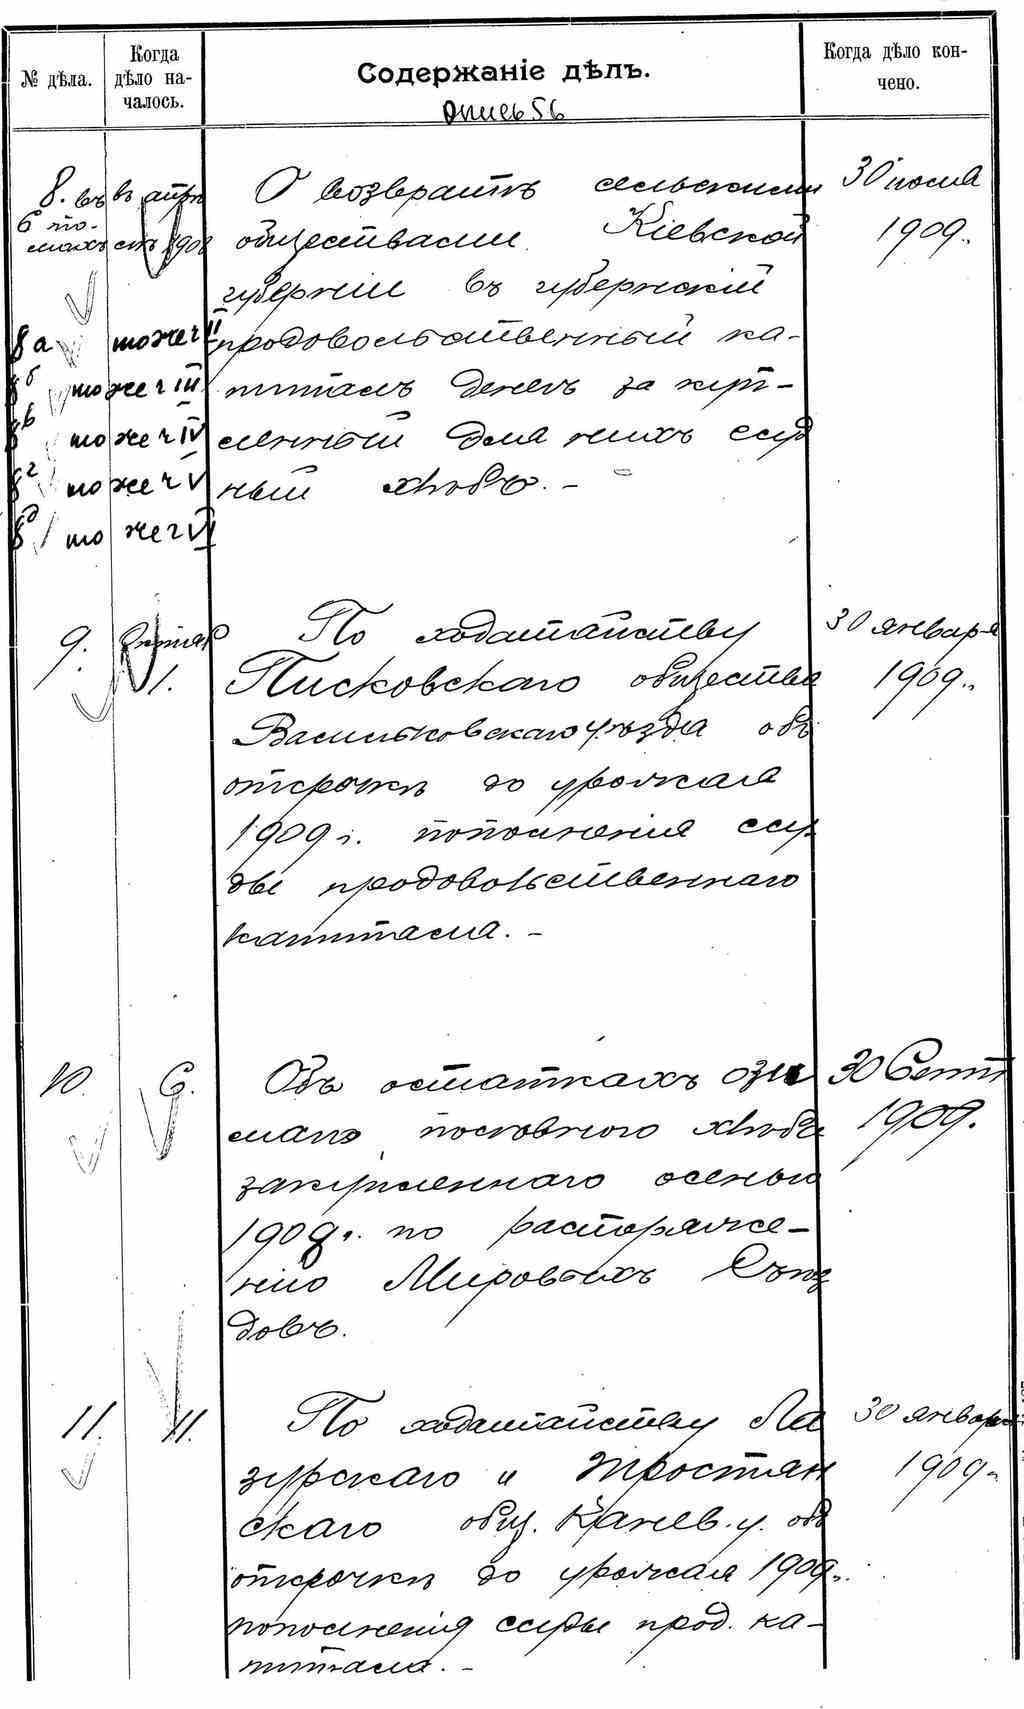 № дѣла.
Когда дѣло на-
чалось.
Содержаніе дѣлъ.
Когда дѣло кон-
чено.
опись 56
8. въ
6 то-
махъ
О возвратѣ сельскими
обществами Кіевской
губерніи въ губернскій
продовольственный ка-
питалъ денегъ за куп-
ленный для нихъ сѣд
ный хлѣбъ. -
1908
30 іюля
1909.
8а тоже ч II
8б тоже ч III
8в тоже ч IV
8г тоже ч V
8д тоже ч VI
9.
1.
По ходатайству
Писковскаго общества
Васильковскаго уѣзда объ
отсрочкѣ до урожая
1909 г. пополненія ссу
ды продовольственнаго
капитала. -
30 января
1909.
10.
6.
Объ остаткахъ ози
маго посѣвного хлѣба
закупленнаго осенью
1908 г. по распоряже-
нію Мировыхъ Съѣз
довъ.
30 Сент
1909.
11.
11.
По ходатайству Ла
зурскаго и Тростян
скаго общ. Канев. у. объ
отсрочкѣ до урожая 1909 г.
пополненія ссуды прод. ка-
питала. -
30 января
1909.